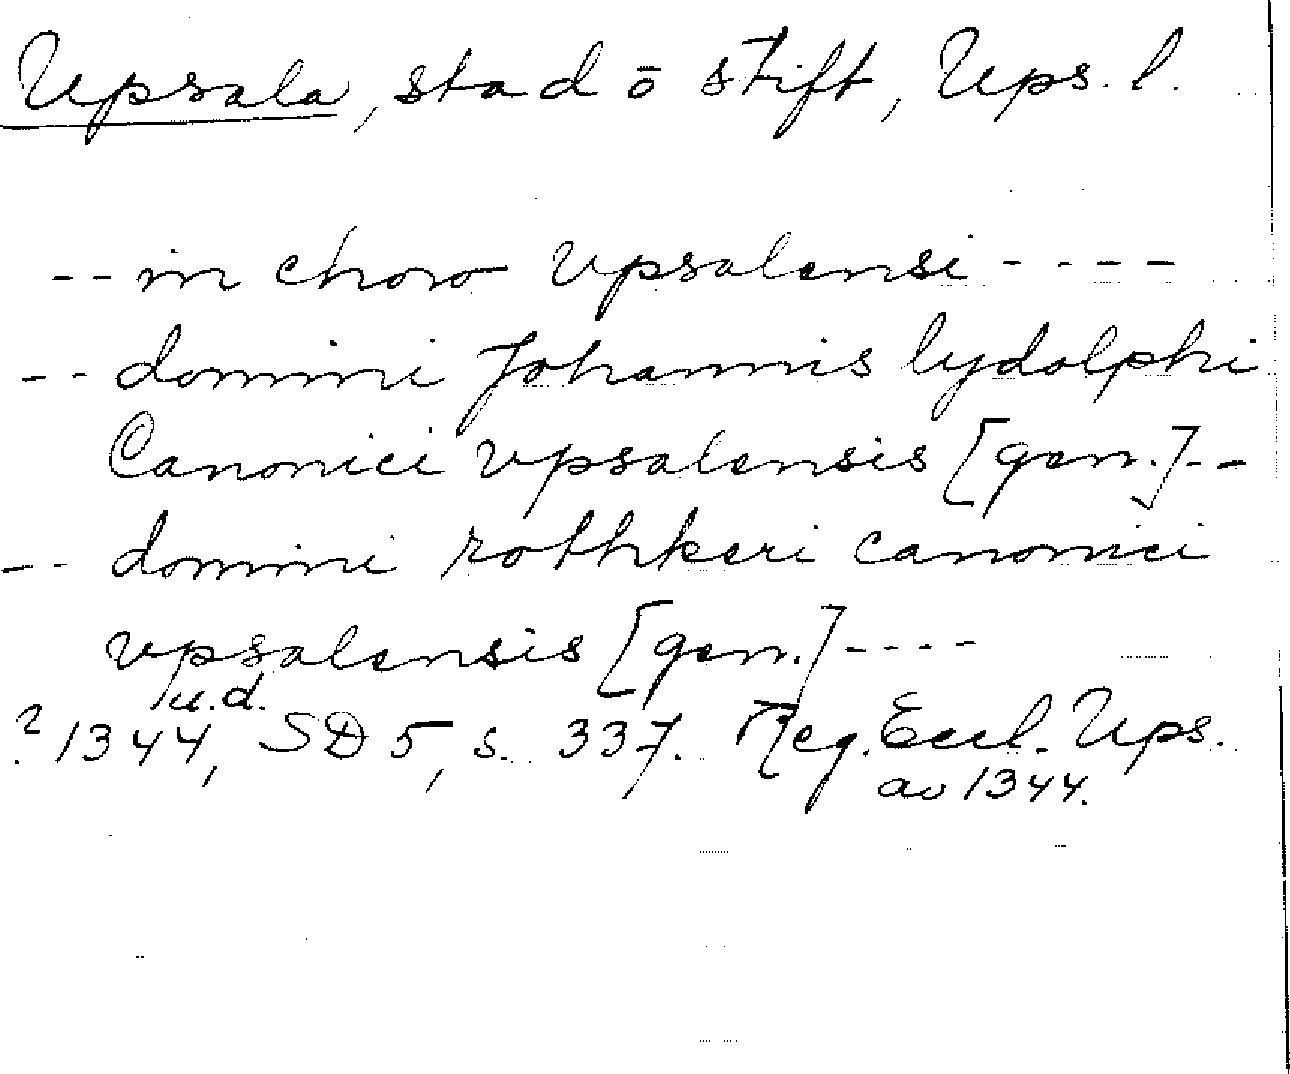 Upsala, stad ō stift, Ups. l.
-- in choro vpsalensi ----
-- domini Johannis lydolphi
Canonici vpsalensis [gen.]--
-- domini rothkeri canonici
vpsalensis [gen.]----
u.d.
? 1344, SD 5, s. 337. Reg. Eccl. Ups.
av 1344.